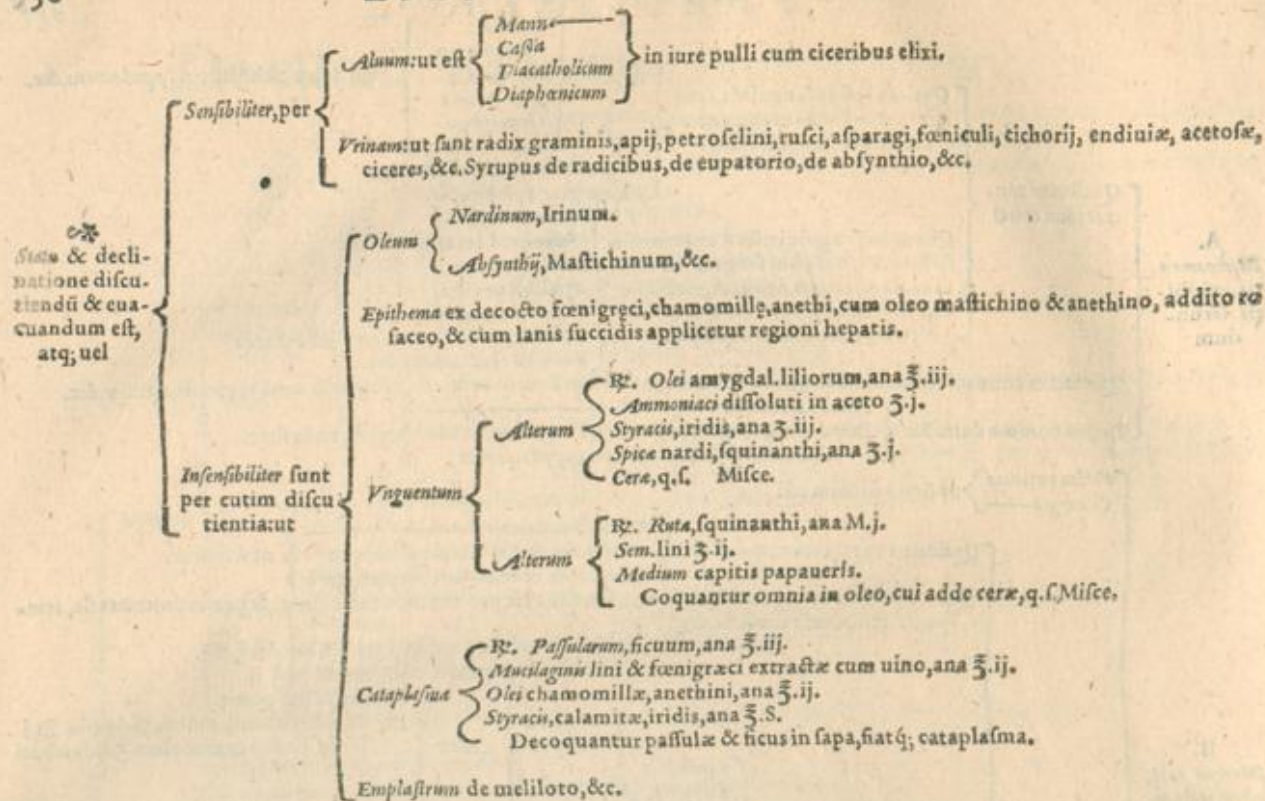 Statu & decli-
natione discu-
tiendū & eua-
cuandum est,
atq; uel
Sensibiliter, per
Aluum: ut est
Manna
Cassia
Diacatholicum
Diaphœnicum
in iure pulli cum ciceribus elixi.
Vrinam: ut sunt radix graminis, apij, petroselini, rusci, asparagi, fœniculi, cichorij, endiuiæ, acetosæ,
ciceres, &c. Syrupus de radicibus, de eupatorio, de absynthio, &c.
Insensibiliter sunt
per cutim discu
tientia: ut
Oleum
Nardinum, Irinum.
Absynthij, Mastichinum, &c.
Epithema ex decocto fœnigręci, chamomillę, anethi, cum oleo mastichino & anethino, addito ro
saceo, & cum lanis succidis applicetur regioni hepatis.
Vnguentum
Alterum
℞. Olei amygdal. liliorum, ana ℥.iij.
Ammoniaci dissoluti in aceto ʒ.j.
Styracis, iridis, ana ʒ.iij.
Spicæ nardi, squinanthi, ana ʒ.j.
Ceræ, q.s. Misce.
Alterum
℞. Rutæ, squinanthi, ana M.j.
Sem. lini ʒ.ij.
Medium capitis papaueris.
Coquantur omnia in oleo, cui adde ceræ, q.s. Misce.
Cataplasma
℞. Passularum, ficuum, ana ℥.iij.
Mucilaginis lini & fœnigræci extractæ cum uino, ana ℥.ij.
Olei chamomillæ, anethini, ana ℥.ij.
Styracis, calamitæ, iridis, ana ℥.S.
Decoquantur passulæ & ficus in sapa, fiatq; cataplasma.
Emplastrum de meliloto, &c.